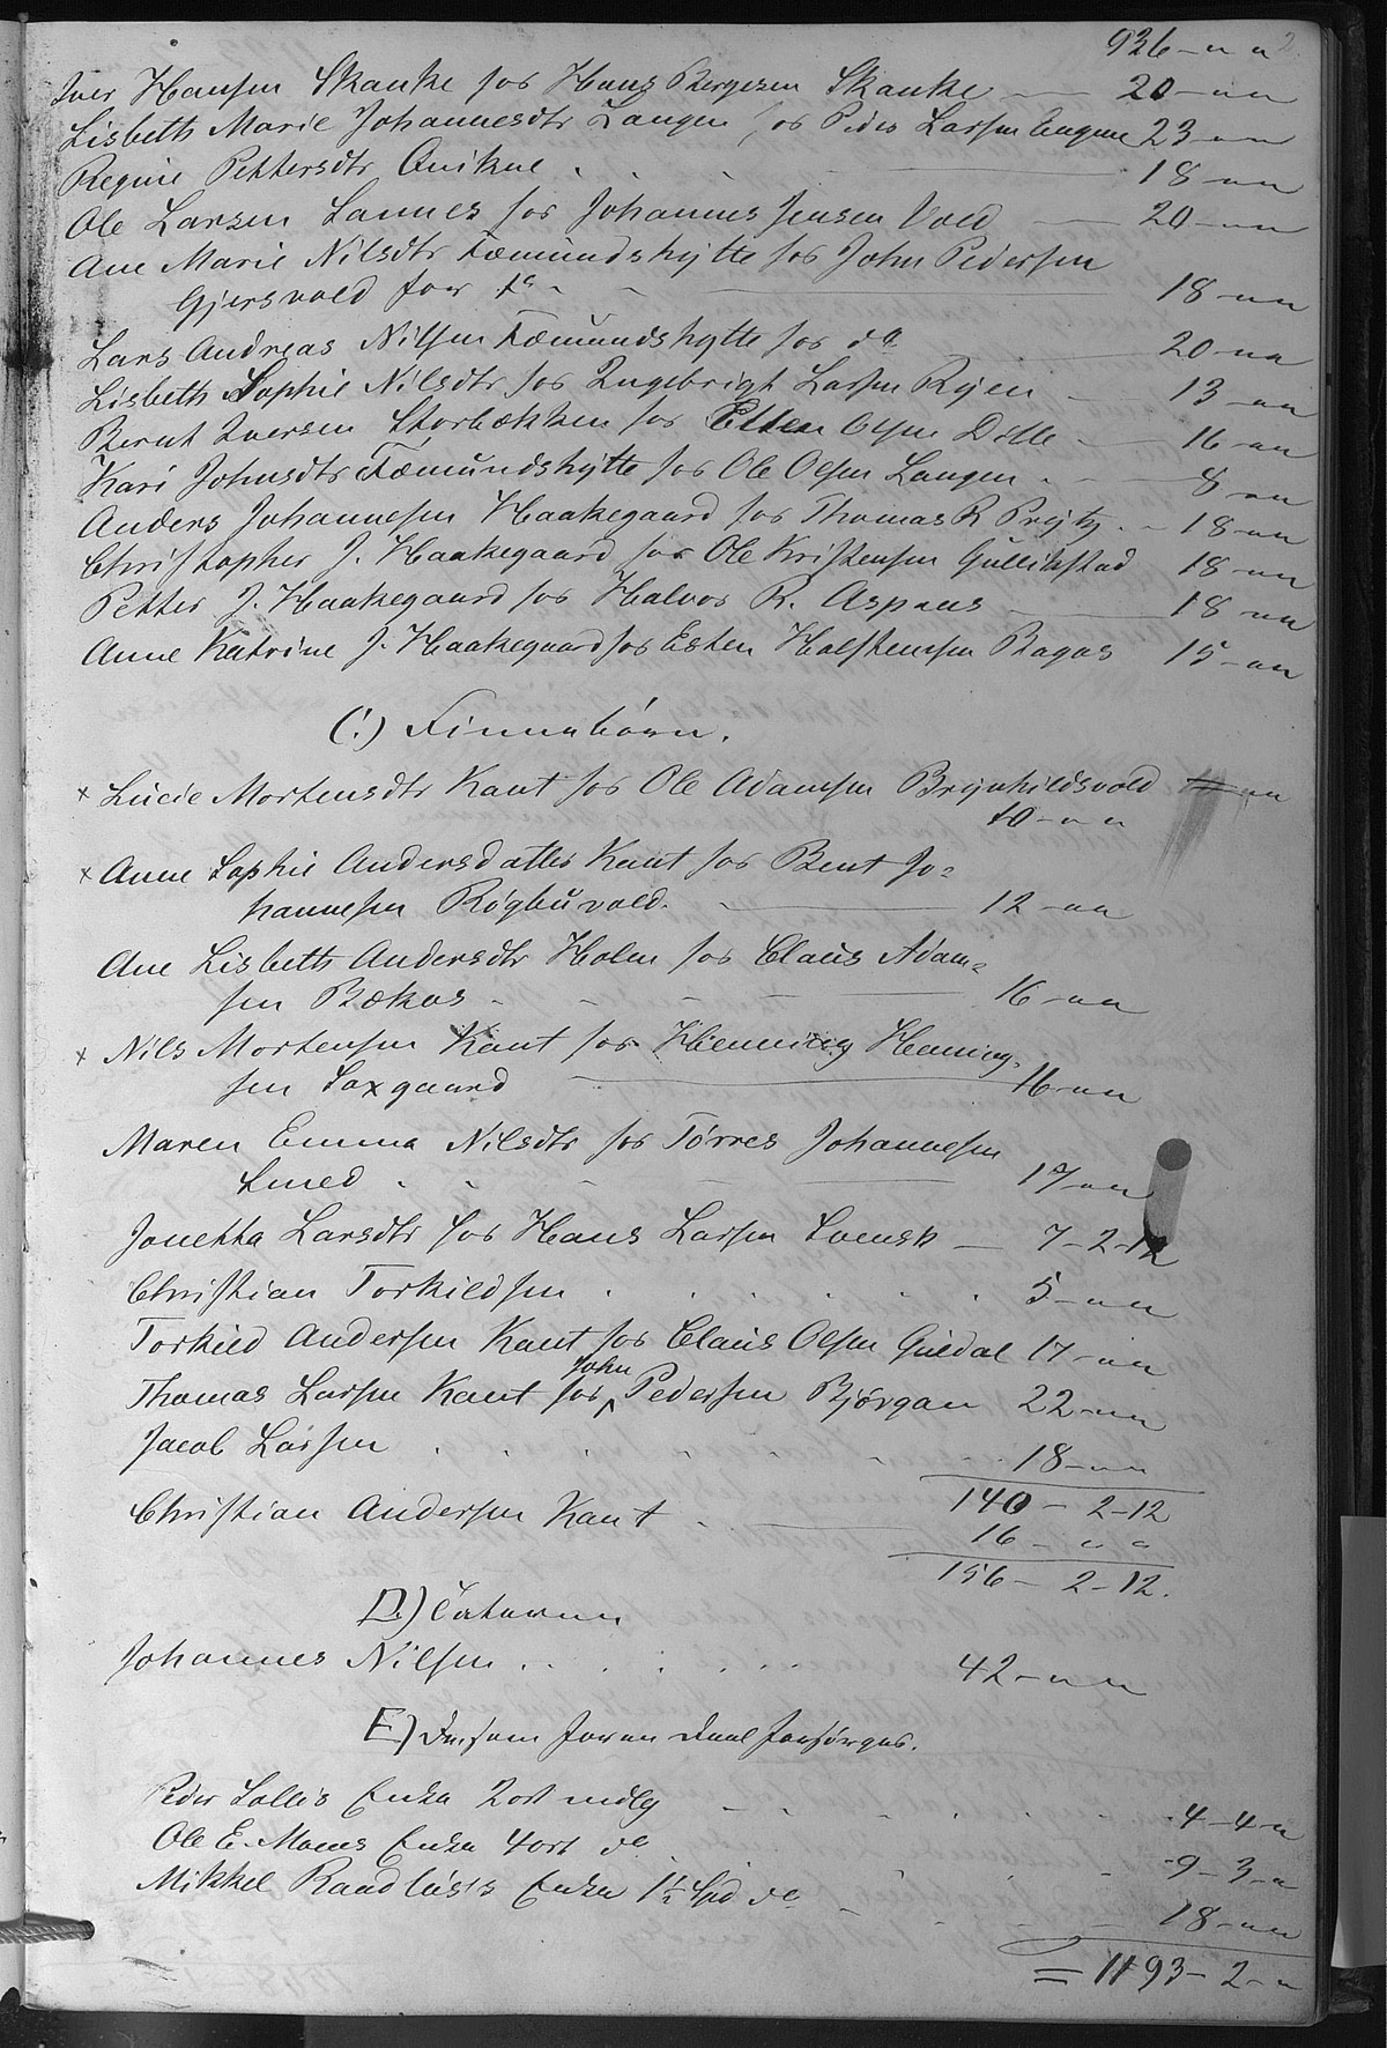 926 - " "
Iver Hansen Skanke hos Hans Bergesen Skanke — 20 - " "
Lisbeth Marie Johannesdtr Langen hos Peder Larsen Engene 23 - " "
Regine Pettersdtr Qvikne . . . 18 - " "
Ole Larsen Sannes hos Johannes Jensen Vold — 20 - " "
Ane Marie Nilsdtr Fæmundshytte hos John Pedersen
Gjersvold for 18 - " "
Lars Andreas Nilsen Fæmundshytte hos do 20 - " "
Lisbeth Sophie Nilsdtr hos Ingebrigt Larsen Ryen - 13 - " "
Bernt Iversen Storbækken hos Olsen Dille — 16 - " "
Kari Johnsdtr Fæmundshytte hos Ole Olsen Langen . - 8 - " "
Anders Johannesen Haakegaard hos Thomas R Prytz . - 18 - " "
Christopher J. Haakegaard hos Ole Kristensen Gullikstad 18 - " "
Petter J. Haakegaard hos Halvor R. Aspaas — 18 - " "
Anne Katrine J. Haakegaard hos Esten Halstensen Bagaas 15 - " "
C.) Finnebørn.
x Lucie Mortensdtr Kant hos Ole Adamsen Brynhildsvold
10 - " "
x Anne Sophie Andersdatter Kant hos Bent Jo=
hannesen Røgbuvold. — 12 - " "
Ane Lisbeth Andersdtr Holm hos Claus Adam=
sen Bækos - - - — 16 - " "
x Nils Mortensen Kant hos Henning Henning=
sen Saxgaard — 16 - " "
Maren Emma Nilsdtr hos Tørres Johannesen
Smed . - - — 17 - " "
Jonetta Larsdtr hos Hans Larsen Svensk — 7 - 2 - 12
Christian Torkildsen . . . . . . 5 - " "
Torkild Andersen Kant hos Claus Olsen Guldal 17 - " "
John
Thomas Larsen Kant hos Pedersen Bjørgan 22 - " "
Jacob Larsen . . . . . . 18 - " "
140 - 2 - 12
Christian Andersen Kant . — 16 - " "
156 - 2 - 12.
D.) Tatere
Johannes Nilsen . . . . . . 42 - " "
E.) De som for en Deel forsørges.
Peder Sollis Enke 2 ort mdlg - - . . . . 4 - 4 - "
Ole E. Moens Enke 4 ort do - 9 - 3 - "
Mikkel Raadløs's Enke 1½ Spd do - - - - 18 - " "
= 1193 - 2 - "